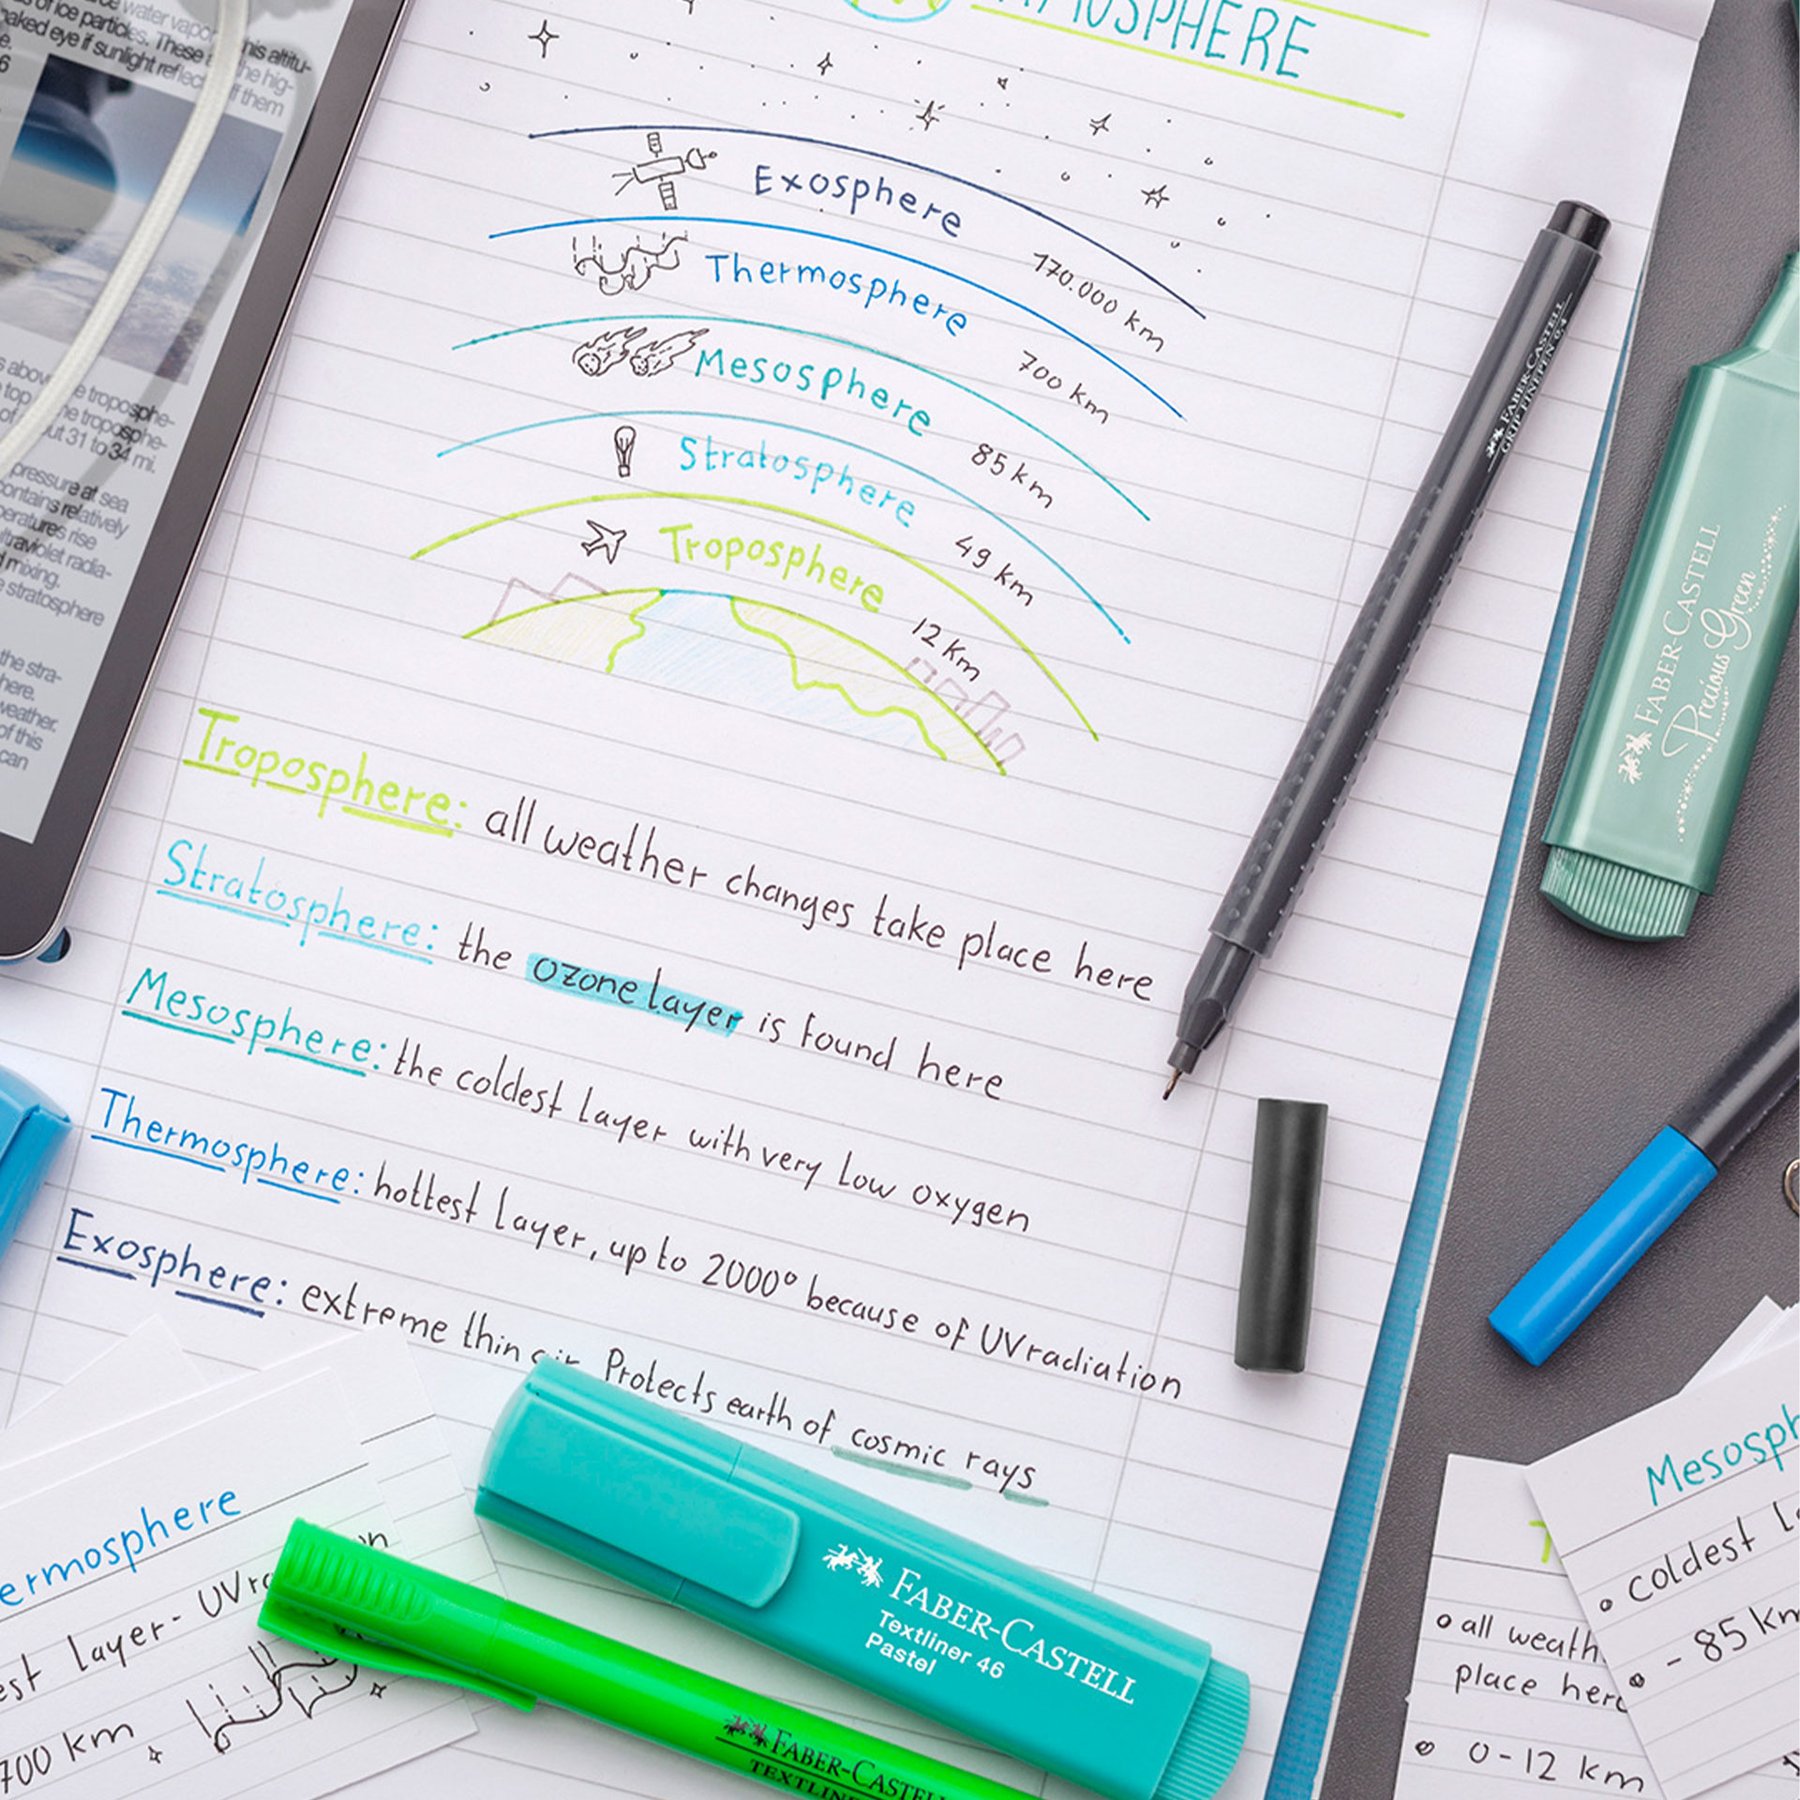 water vapor
of ice particles. These
naked eye if sunlight reflec
this altitu-
the hig-
off them
SPHERE
Exosphere
170.000 km
Thermosphere
700 km
Mesosphere
85 km
Stratosphere
49 km
Troposphere
12 km
Troposphere: all weather changes take place here
Stratosphere: the ozone layer is found here
Mesosphere: the coldest layer with very low oxygen
Thermosphere: hottest layer, up to 2000° because of UV radiation
Exosphere: extreme thin air. Protects earth of cosmic rays
s above the troposphe-
top the troposphe-
of out 31 to 34 mi.
pressure at sea
contains relatively
peratures rise
ultraviolet radia-
mixing.
stratosphere
the stra-
here.
weather.
of this
can
FABER-CASTELL
GRIP FINEPEN 0.4
FABER-CASTELL
Precious Green
FABER-CASTELL
Textliner 46
Pastel
FABER-CASTELL
TEXTLINE
ermosphere
est layer - UV ra
on
700 km
Mesosph
coldest l
- 85 km
all weath
place here
0-12 km